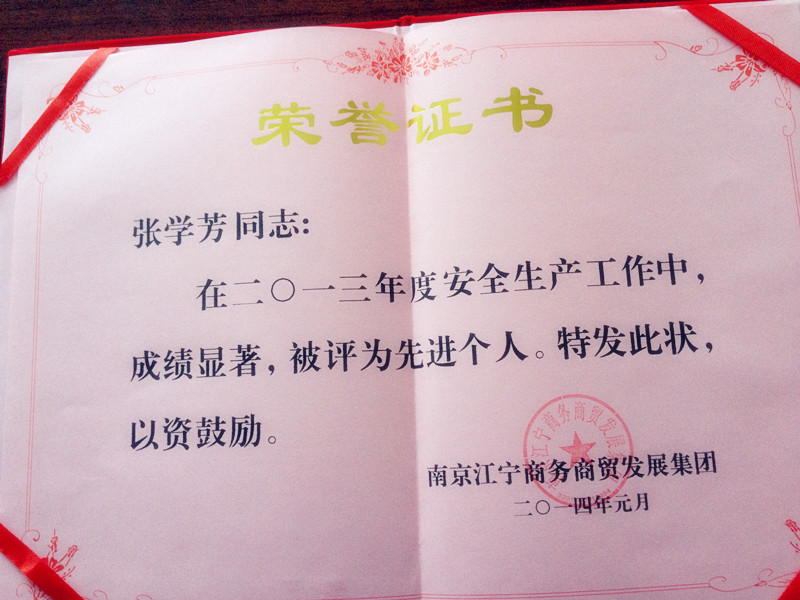 荣誉证书
张学芳同志:
在二〇一三年度安全生产工作中，
成绩显著，被评为先进个人。特发此状，
以资鼓励。
南京江宁商务商贸发展集团
二〇一四年元月